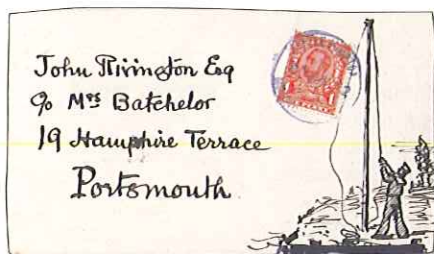 John Rivington Esq
c/o Mrs Batchelor
19 Hamphire Terrace
Portsmouth